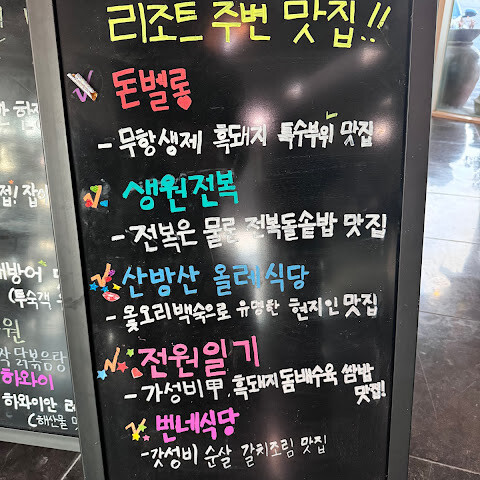 리조트 주변 맛집!!
돈벨롱
- 무항생제 흑돼지 특수부위 맛집
생원전복
- 전복은 물론 전복돌솥밥 맛집
산방산 올레식당
- 옻오리백숙으로 유명한 현지인 맛집
전원일기
- 가성비甲, 흑돼지 돔베수육 쌈밥
맛집!
번네식당
- 갓성비 순살 갈치조림 맛집
(투숙객
닭볶음탕
하와이
하와이안
(해산물